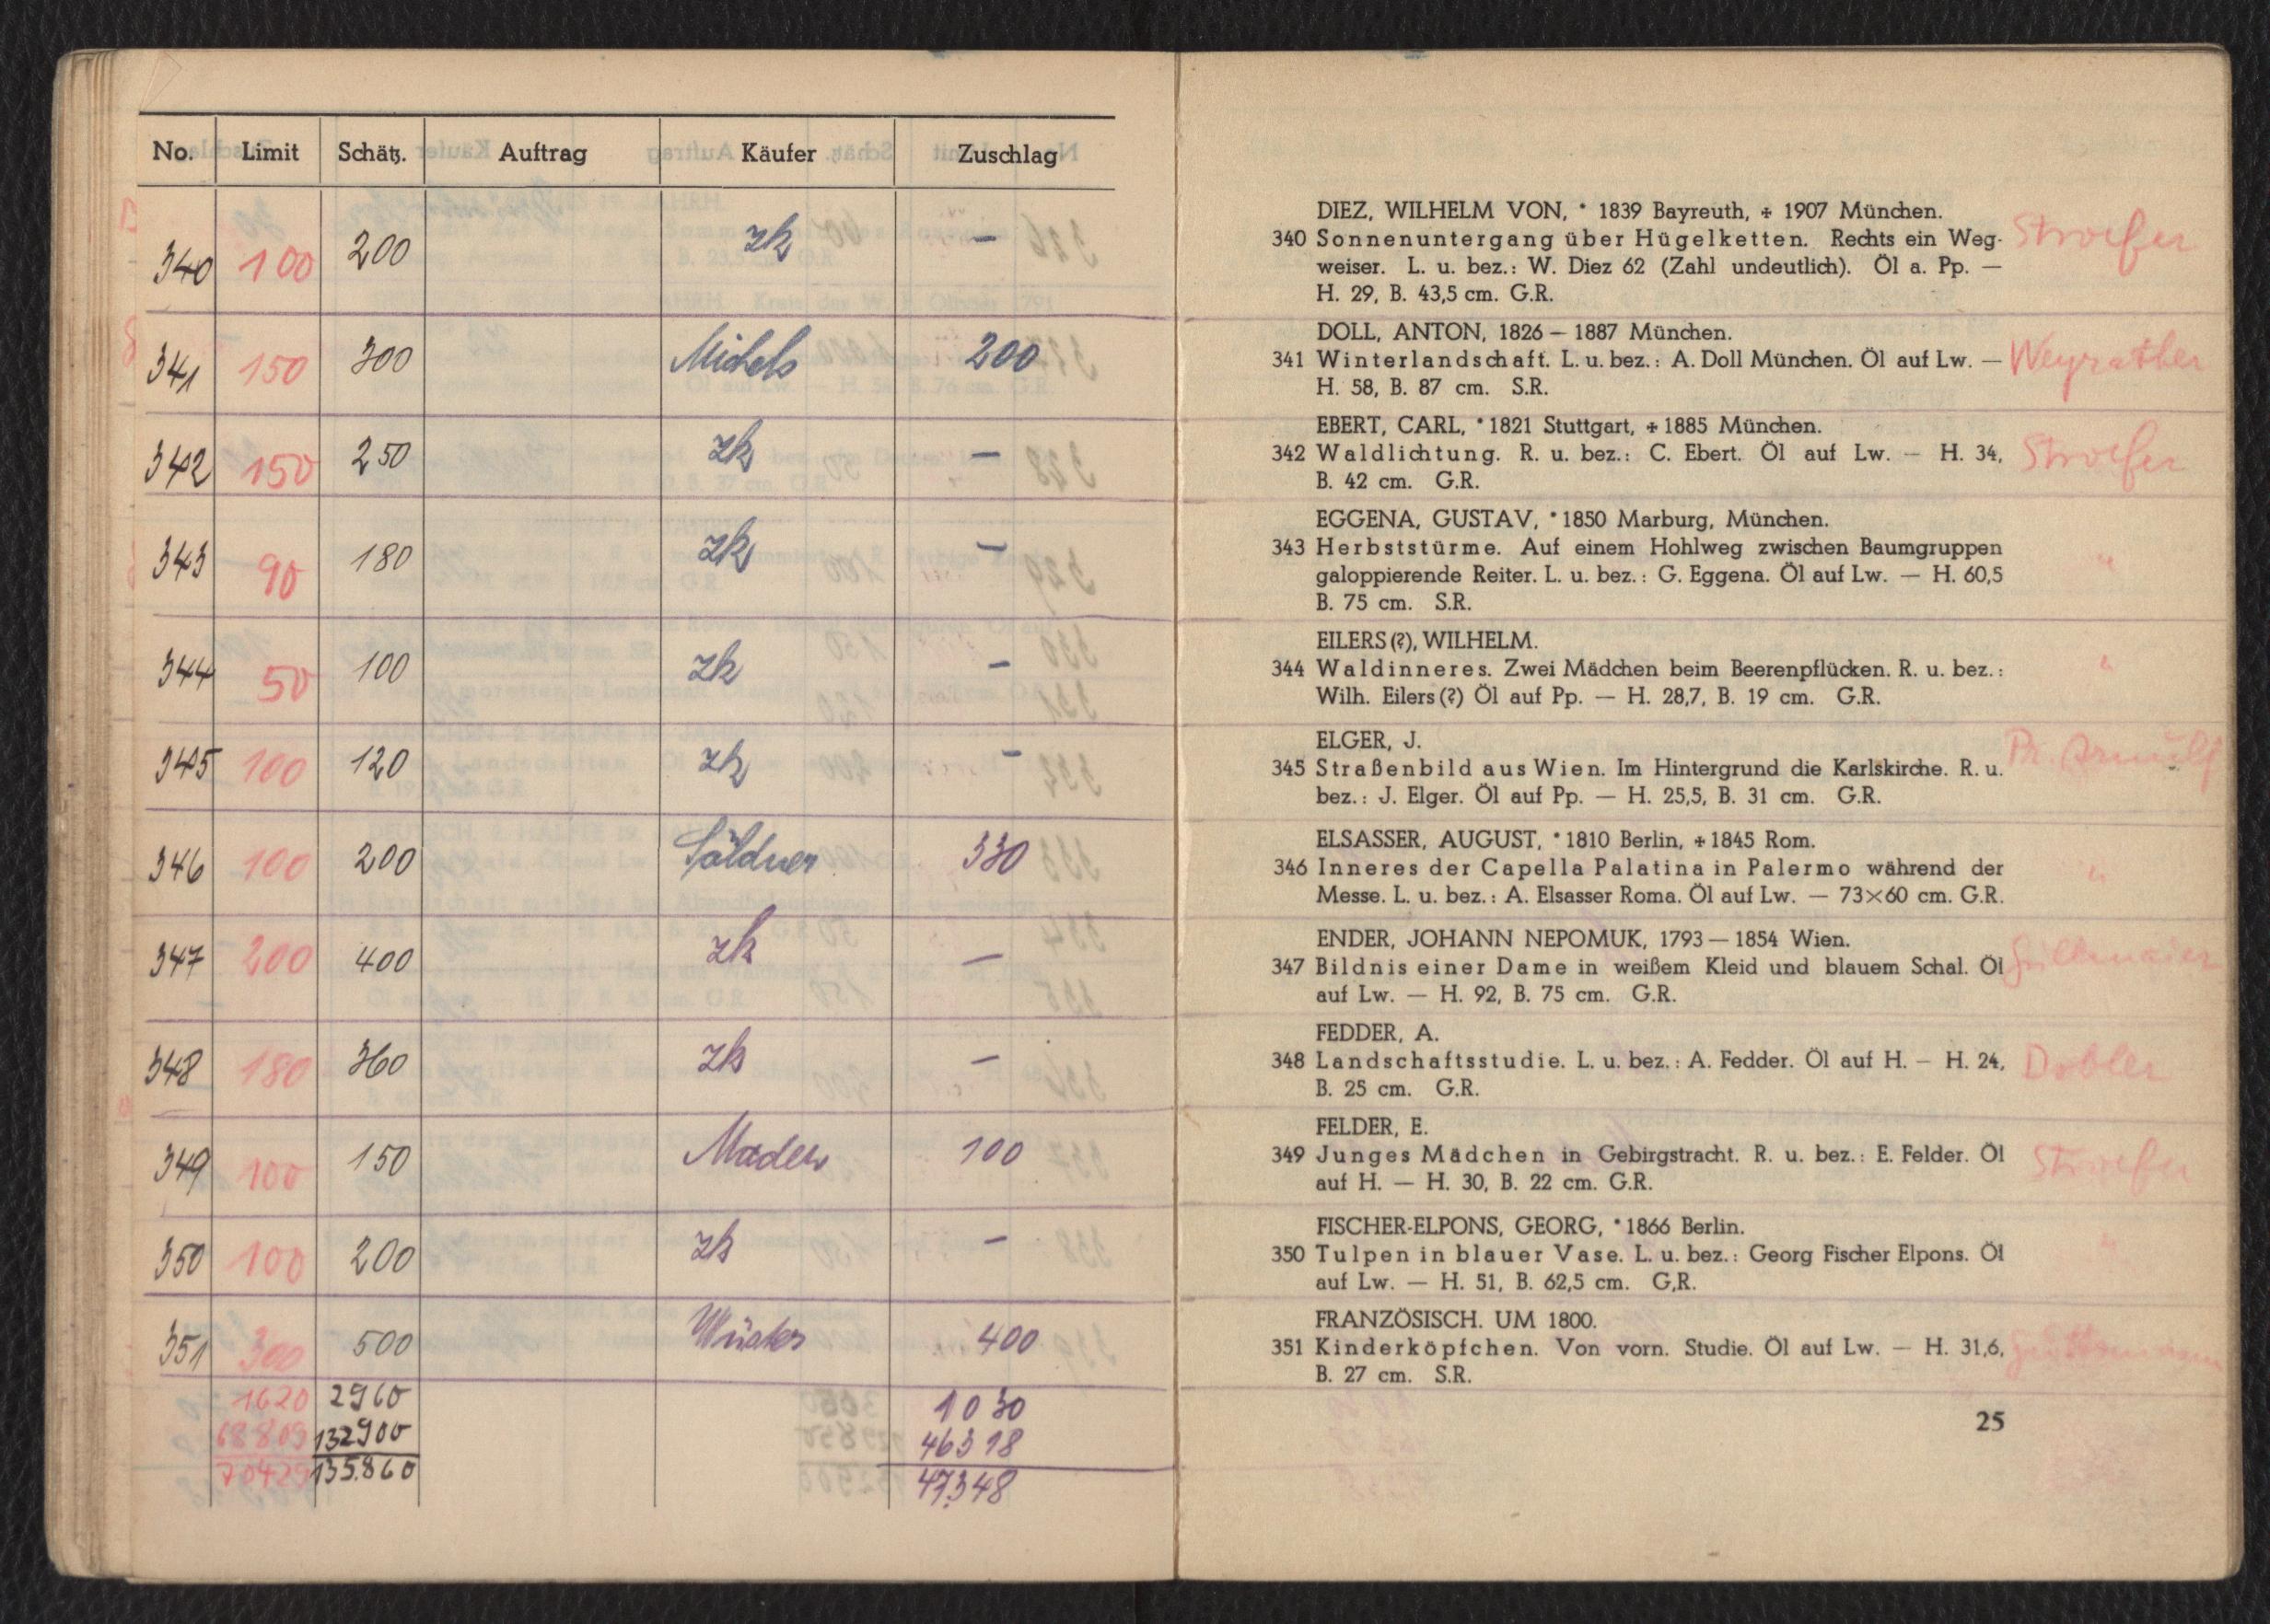 No. Limit Schätz. Auftrag Käufer Zuschlag
340 100 200 zk –
341 150 300 Michels 200
342 150 250 zk –
343 90 180 zk –
344 50 100 zk –
345 100 120 zk –
346 100 200 Söldner 330
347 200 400 zk –
348 180 360 zk –
349 100 150 100
350 100 200 zk –
351 300 500 400
1620 2960 1030
68809 132900 46318
70429 135.860 47.348
DIEZ, WILHELM VON, * 1839 Bayreuth, + 1907 München.
340 Sonnenuntergang über Hügelketten. Rechts ein Weg- Stroefer
weiser. L. u. bez.: W. Diez 62 (Zahl undeutlich). Öl a. Pp. —
H. 29, B. 43,5 cm. G.R.
DOLL, ANTON, 1826 – 1887 München.
341 Winterlandschaft. L. u. bez.: A. Doll München. Öl auf Lw. — Weyrather
H. 58, B. 87 cm. S.R.
EBERT, CARL, * 1821 Stuttgart, + 1885 München.
342 Waldlichtung. R. u. bez.: C. Ebert. Öl auf Lw. — H. 34, Stroefer
B. 42 cm. G.R.
EGGENA, GUSTAV, * 1850 Marburg, München.
343 Herbststürme. Auf einem Hohlweg zwischen Baumgruppen "
galoppierende Reiter. L. u. bez.: G. Eggena. Öl auf Lw. — H. 60,5
B. 75 cm. S.R.
EILERS (?), WILHELM.
344 Waldinneres. Zwei Mädchen beim Beerenpflücken. R. u. bez.: "
Wilh. Eilers (?) Öl auf Pp. — H. 28,7, B. 19 cm. G.R.
ELGER, J.
345 Straßenbild aus Wien. Im Hintergrund die Karlskirche. R. u. Pr. Arnulf
bez.: J. Elger. Öl auf Pp. — H. 25,5, B. 31 cm. G.R.
ELSASSER, AUGUST, * 1810 Berlin, + 1845 Rom.
346 Inneres der Capella Palatina in Palermo während der "
Messe. L. u. bez.: A. Elsasser Roma. Öl auf Lw. — 73×60 cm. G.R.
ENDER, JOHANN NEPOMUK, 1793 — 1854 Wien.
347 Bildnis einer Dame in weißem Kleid und blauem Schal. Öl
auf Lw. — H. 92, B. 75 cm. G.R.
FEDDER, A.
348 Landschaftsstudie. L. u. bez.: A. Fedder. Öl auf H. — H. 24, Dobler
B. 25 cm. G.R.
FELDER, E.
349 Junges Mädchen in Gebirgstracht. R. u. bez.: E. Felder. Öl Stroefer
auf H. — H. 30, B. 22 cm. G.R.
FISCHER-ELPONS, GEORG, * 1866 Berlin.
350 Tulpen in blauer Vase. L. u. bez.: Georg Fischer Elpons. Öl "
auf Lw. — H. 51, B. 62,5 cm. G,R.
FRANZÖSISCH. UM 1800.
351 Kinderköpfchen. Von vorn. Studie. Öl auf Lw. — H. 31,6,
B. 27 cm. S.R.
25